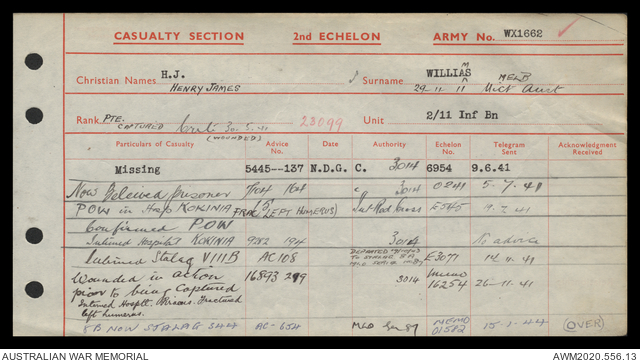 CASUALTY SECTION 2nd ECHELON ARMY No. WX1662
Christian Names H.J. HENRY JAMES Surname WILLIAMS MELB
29.11.11 Vict Aust
Rank PTE. Unit 2/11 Inf Bn
CAPTURED Crete 30.5.41 (WOUNDED) 23099
Particulars of Casualty Advice No. Authority Echelon No. Telegram Sent Acknowledgment Received
Missing 5445--137 N.D.G. C. 3014 6954 9.6.41
Now Believed prisoner 164 3014 0241 5.7.41
POW in Hosp KOKINIA (LEFT HUMERUS) Int Red Cross E545 9.7.41
Confirmed POW
Interned Hospital KOKINIA 9282 194 3014 No advice
Interned Stalag VIIIB AC108 E3071 14.11.41
Wounded in action 16893 299 3014 memo 16254 26-11-41
prior to being captured
Interned Hospit. Prisons. Fractured
left humerus.
8B NOW STALAG 344 AC-654 MLD Gen 87 MEMO 01582 15-1-44 (OVER)
AUSTRALIAN WAR MEMORIAL AWM2020.556.13